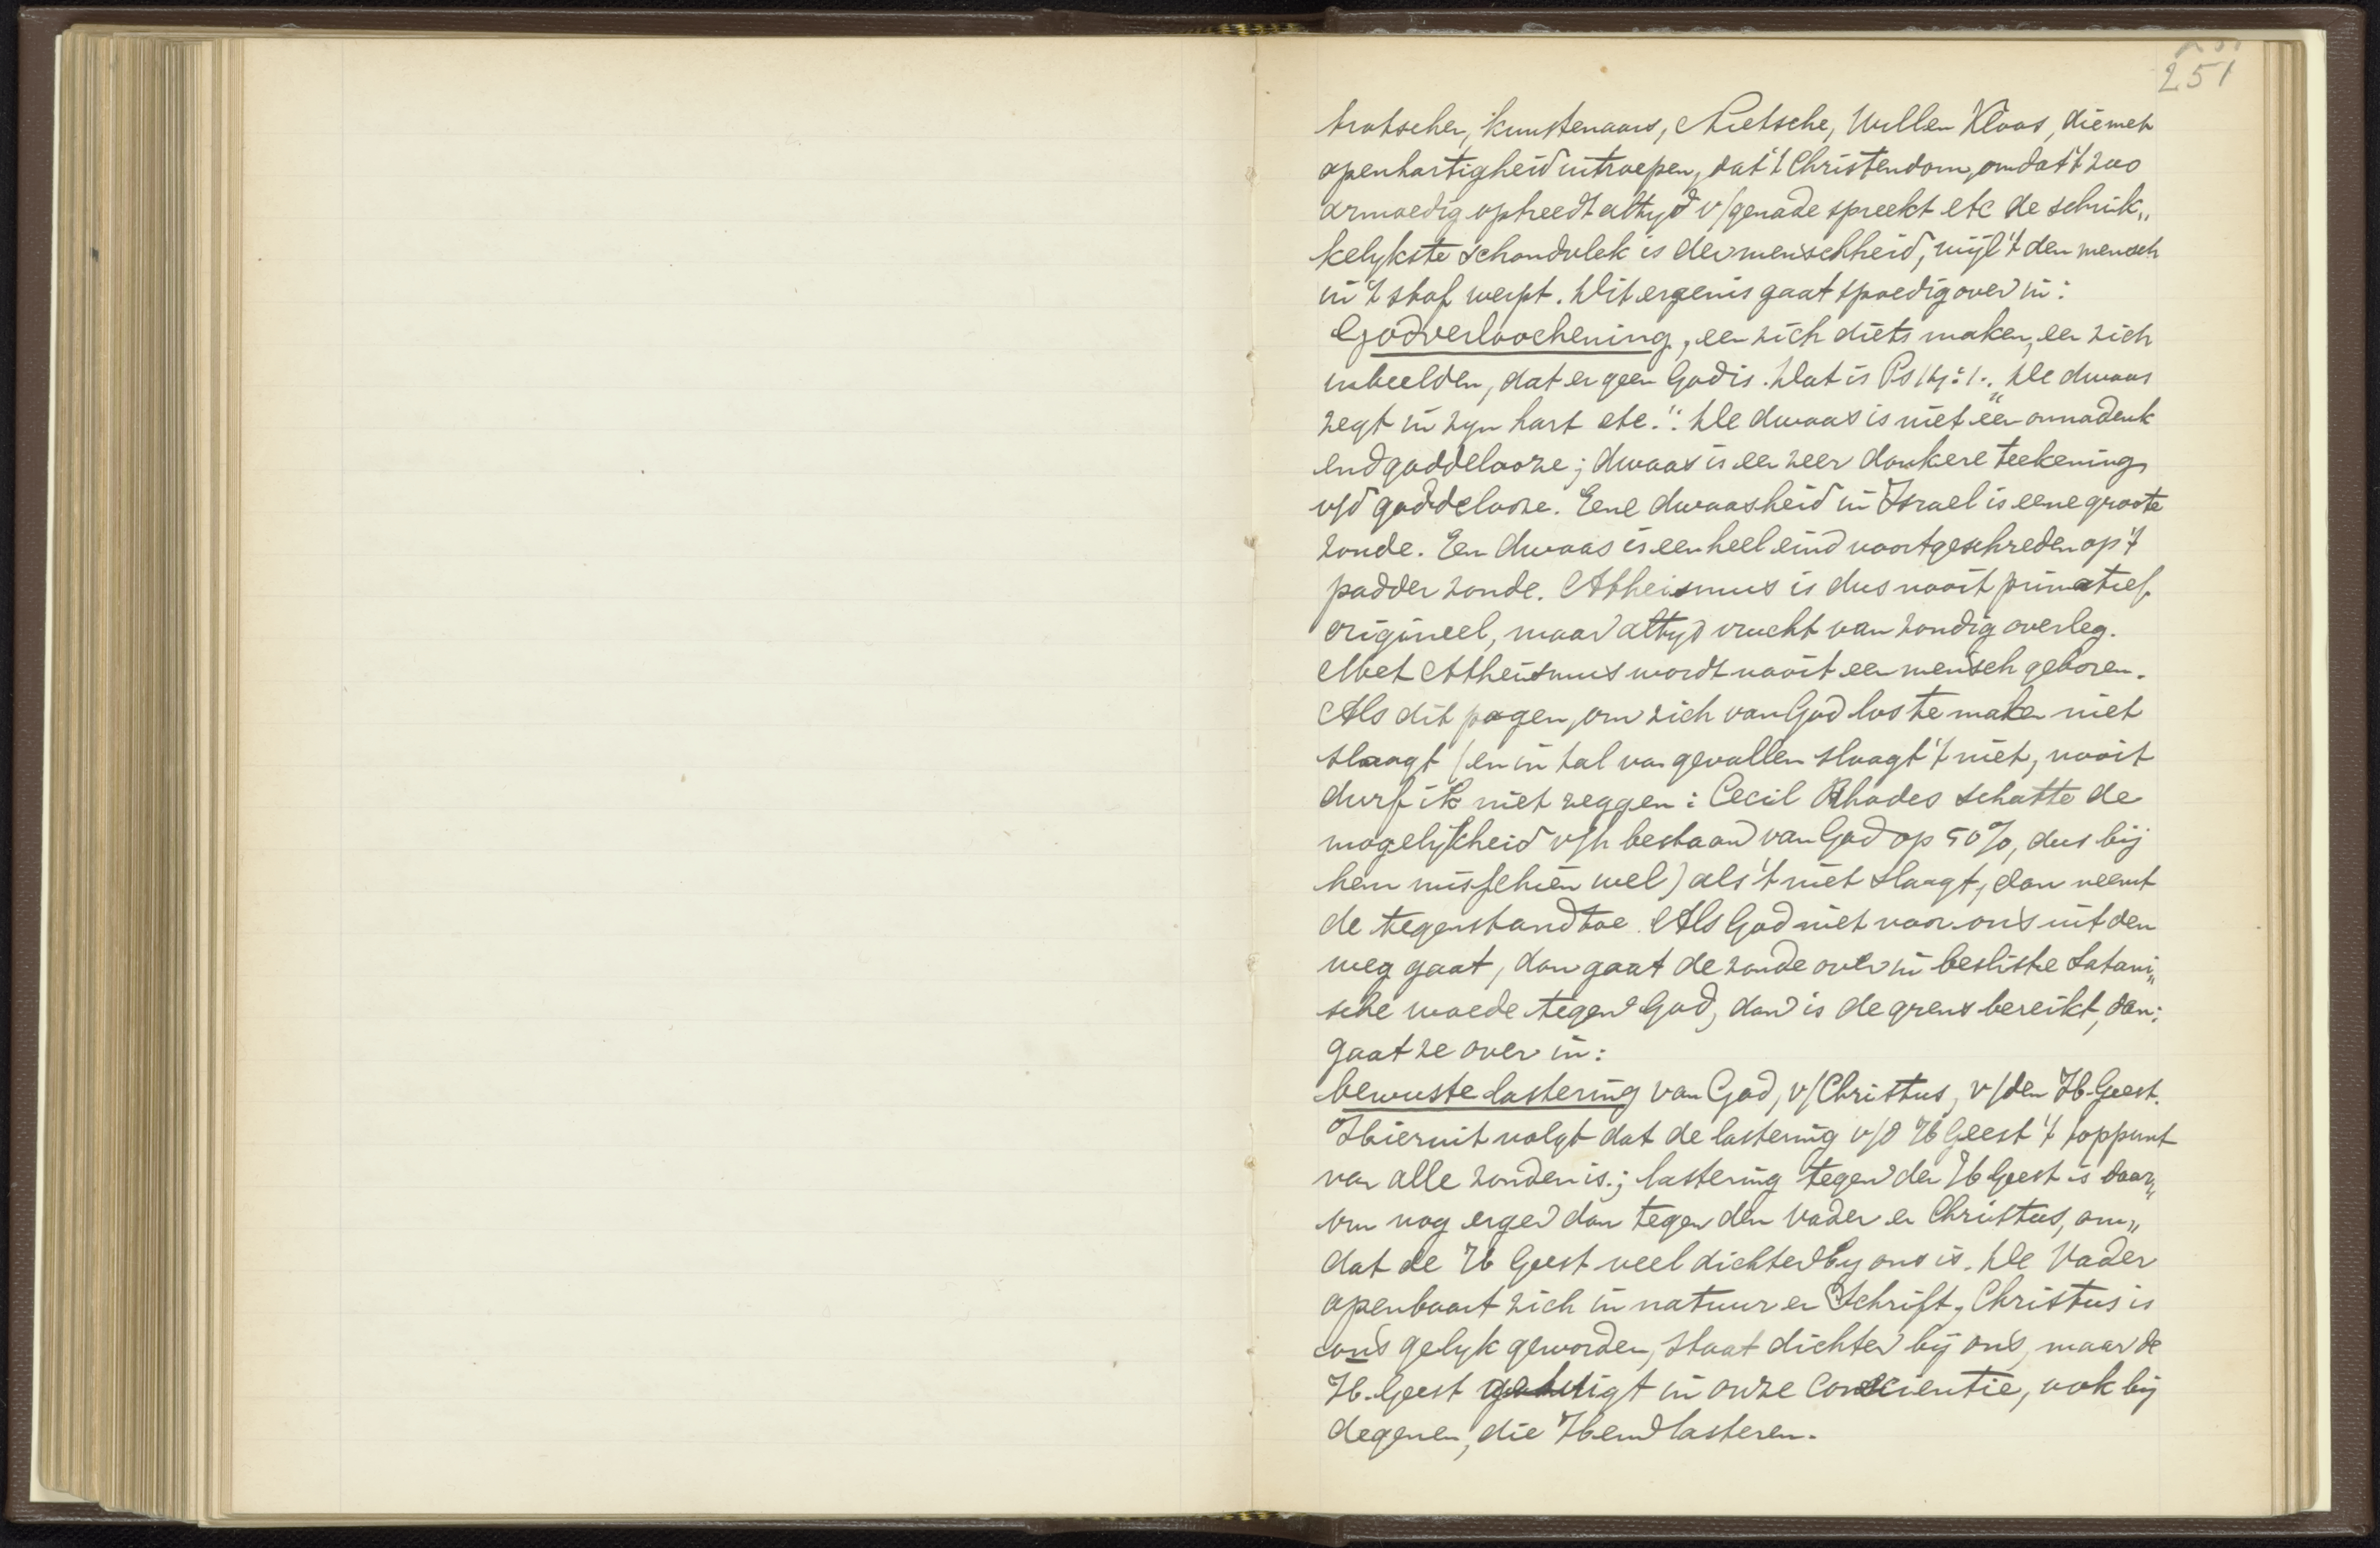 251
trotsche, kunstenaars, Nietsche, Willem Kloos, die met
openhartigheid uitroepen, dat 't Christendom, omdat 't zoo
armoedig optreedt altyd v/genade spreekt etc de schrik„
kelykste schandvlek is der menschheid, wijl 't den mensch
in 't stof werpt. Dit ergenis gaat spoedig over in:
Godverloochening, een zich diets maken, een zich
inbeelden, dat er geen God is. Dat is Ps 14:1. „De dwaas
zegt in zyn hart etc.": De dwaas is niet een onnadenk
end goddelooze; dwaas is een zeer donkere teekening
v/d goddelooze. Eene dwaasheid in Israel is eene groote
zonde. Een dwaas is een heel eind voortgeschreden op 't
pad der zonde. Atheismus is dus nooit primatief
origineel, maar altyd vrucht van zondig overleg.
Met Atheismus wordt nooit een mensch geboren.
Als dit pogen, om zich van God los te maken niet
slaagt (en in tal van gevallen slaagt 't niet, nooit
durf ik niet zeggen: Cecil Rhodes schatte de
mogelykheid v/h bestaan van God op 50%, dus bij
hem misschien wel) als 't niet slaagt, dan neemt
de tegenstand toe. Als God niet voor ons uit den
weg gaat, dan gaat de zonde over in besliste Satani„
sche woede tegen God, dan is de grens bereikt, dan:
gaat ze over in:
bewuste lastering van God, v/Christus, v/den H. Geest.
Hieruit volgt dat de lastering v/d H Geest 't toppunt
van alle zonden is.; lastering tegen den H Geest is daar„
om nog erger dan tegen den Vader en Christus, om„
dat de H Geest veel dichter by ons is. De Vader
openbaart zich in natuur en Schrift, Christus is
ons gelyk geworden, staat dichter bij ons, maar de
H. Geest getuigt in onze conscientie, ook bij
degenen, die Hem lasteren.